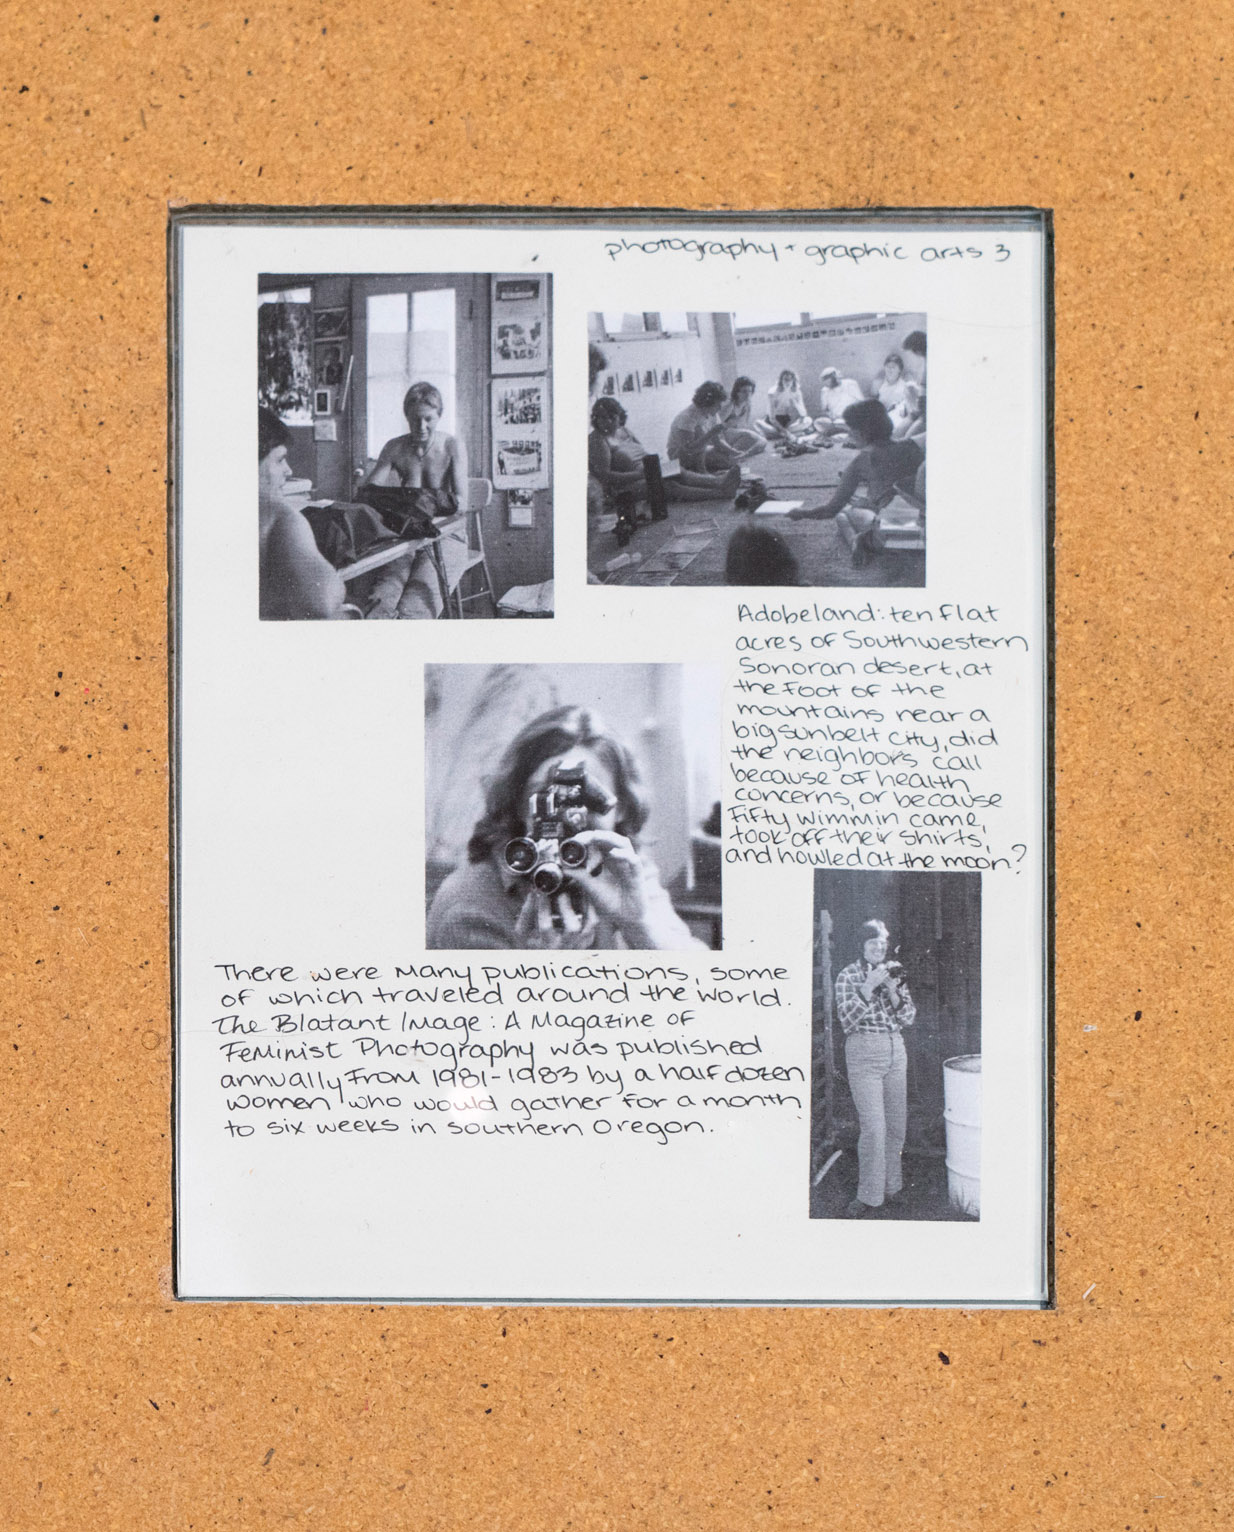 photography + graphic arts 3
Adobeland: ten flat
acres of Southwestern
Sonoran desert, at
the foot of the
mountains near a
big sunbelt city, did
the neighbors call
because of health
concerns, or because
Fifty wimmin came,
took off their shirts,
and howled at the moon?
There were many publications, some
of which traveled around the world.
The Blatant Image: A Magazine of
Feminist Photography was published
annually from 1981-1983 by a half dozen
women who would gather for a month
to six weeks in southern Oregon.